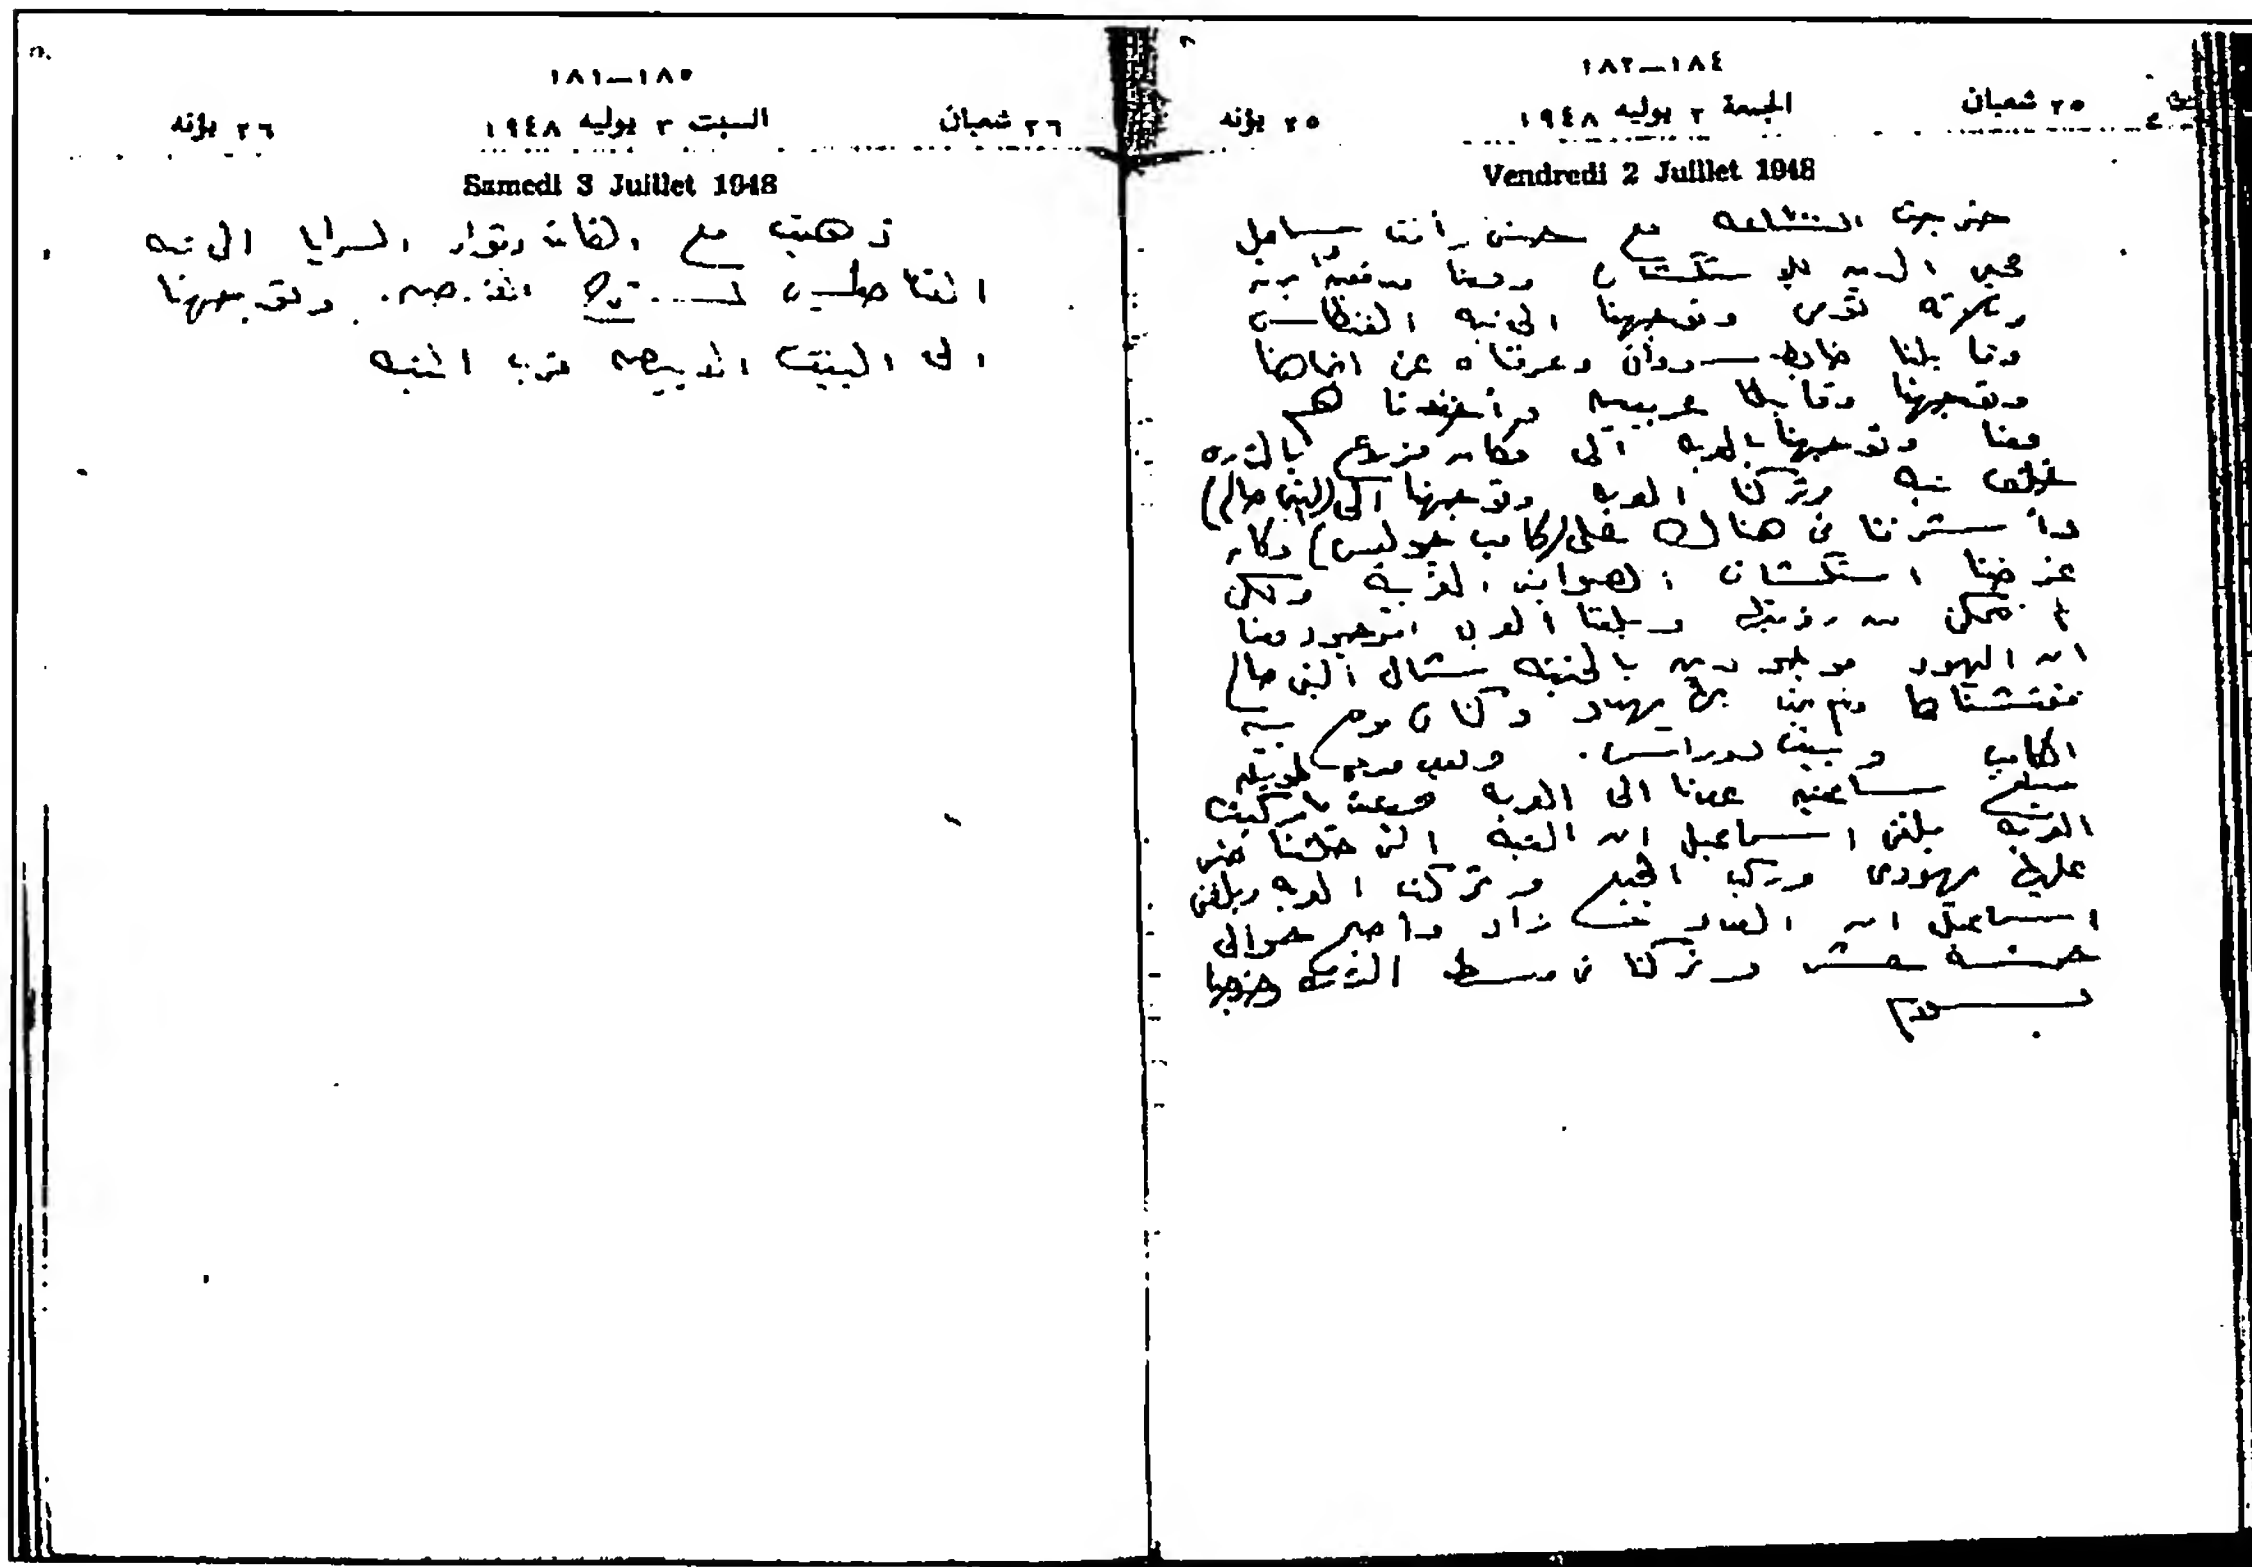 ١٨٤—١٨٢
٢٥ شعبان الجمعة ٢ يوليه ١٩٤٨ ٢٥ بؤنه
Vendredi 2 Juillet 1948
خرجت الساعه مع حسن رأفت
محى الدين للاستكشاف ومعنا مدفعين برن
وتوجهنا الى تبه الفنطاس
وقابلنا ضابط سودانى وعرفناه عن اتجاهنا
وتوجهنا وقابلنا عربيين وأخذنا هم
معنا وتوجهنا بالعربه الى مكان مزروع بالذره
خلف تبه وتركنا العربه وتوجهنا الى (النبى صالح)
وأ شرفنا من هناك على (كامب جوليس) وكان
غرضنا استكشاف الصوامع الغربية ولكن
لم نتمكن من رؤيتها وبلغنا العرب الموجود معنا
ان اليهود موجودين بالجنينه شمال النبى صالح
ففتشناها ولم نجد بها يهود وكنا فى موقع بين
الكامب وبيت دوراس. وبعد مده طويله
مبلغ ساعتين عدنا الى العربه
العربه بلغنى اسماعيل ان التبه التى خلفنا
عليها يهودى وركب الجميع وتركنا العربه وبلغنى
اسماعيل ان العدد زاد واصبح حوالى
خمسه عشر وتركنا فى وسط الذره وخرجنا
بسلام
١٨٥—١٨١
٢٦ شعبان السبت ٣ يوليه ١٩٤٨ ٢٦ بؤنه
Samedi 3 Juillet 1948
ذهبت مع السرايا الى تبه
الفناطيس وتوجهنا
الى البيت الابيض قرب التبه